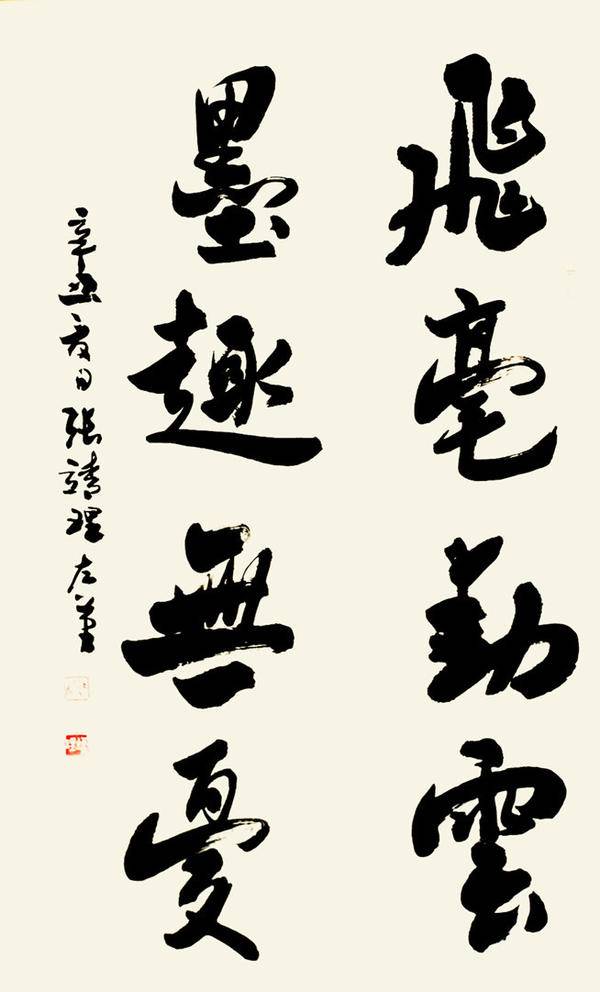 飛毫動雲
墨趣無憂
辛丑夏日張靖理左筆